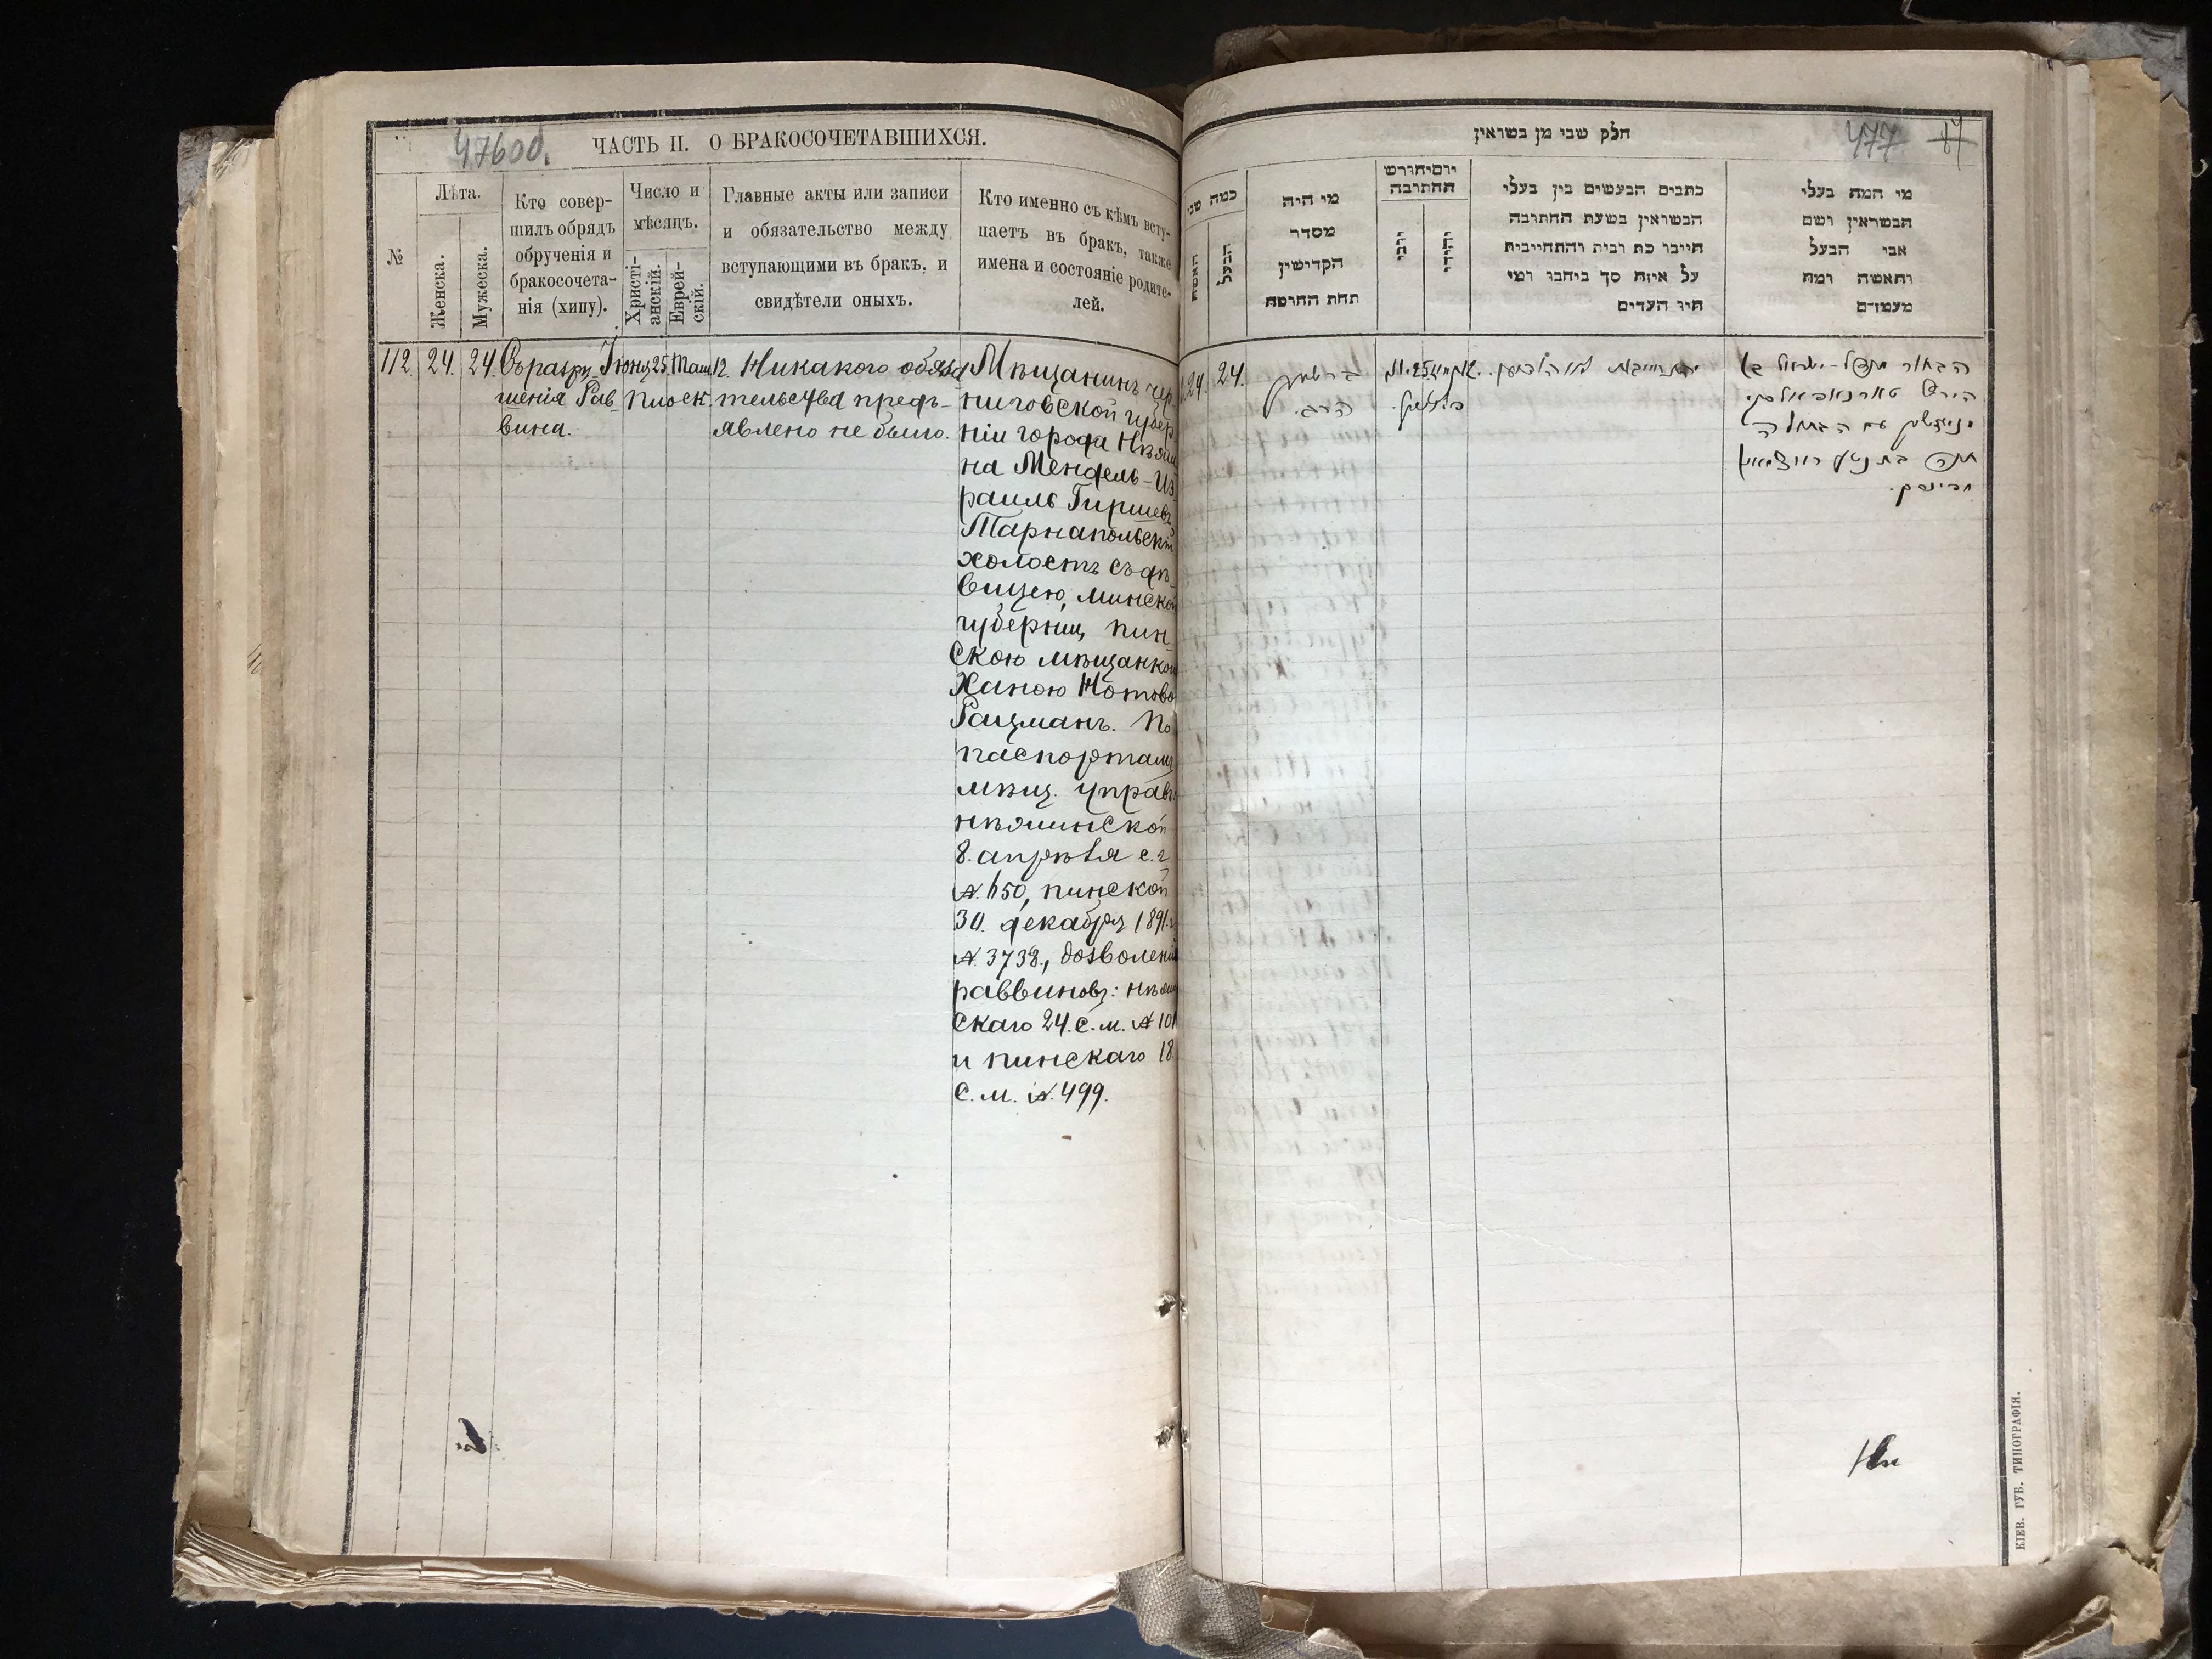 47600.
ЧАСТЬ II. О БРАКОСОЧЕТАВШИХСЯ.
№
Лѣта.
Женска.
Мужеска.
Кто совер-
шилъ обрядъ
обрученія и
бракосочета-
нія (хипу).
Число и
мѣсяцъ.
Христі-
анскій.
Еврей-
скій.
Главные акты или записи
и обязательство между
вступающими въ бракъ, и
свидѣтели оныхъ.
Кто именно съ кѣмъ всту-
паетъ въ бракъ, также
имена и состояніе родите-
лей.
112. 24. 24.
Съ разрѣ
шенія Рав
вина.
Іюня 25. Там. 12.
Плоск.
Никакого обяза
тельства предъ-
явлено не было.
Мѣщанинъ Чер
ниговской губер
ніи города Нѣжи
на Мендель-Из
раиль Гиршевъ
Тарнапольскій
холостъ съ дѣ
вицею, минской
губерніи, пин
скою мѣщанкою
Ханою Нотово
Рацманъ. По
паспортамъ
мѣщ. управъ:
нѣжинской
8. апрѣля с. г.
№ 650, пинской
30. декабря 1891. г.
№ 3738., дозволенія
раввиновъ: нѣжин
скаго 24. с. м. № 101
и пинскаго 18
с. м. № 499.
477 87
חלק שני מן נשואין
כמה שני
האשה
הבעל
מי היה
מסדר
הקדישין
תחת החופה
יום וחודש
החתונה
כתבים הנעשים בין בעלי
הנשואין בשעת החתונה
חייבו כח ובית והתחייבות
על איזה סך ניתנו ומי
היו העדים
מי המה בעלי
הנשואין ושם
אבי הבעל
והאשה ומה
מעמדם
24. 24.
ברשיון
הרב.
התחייבות לא הובאו.
הבחור מענדל-ישראל בן
הירש טארנאפאלסקי
מניעזשין עם הבתולה
חנה בת נטע ראצמאן
מפינסק.
КІЕВ. ГУБ. ТИПОГРАФІЯ.